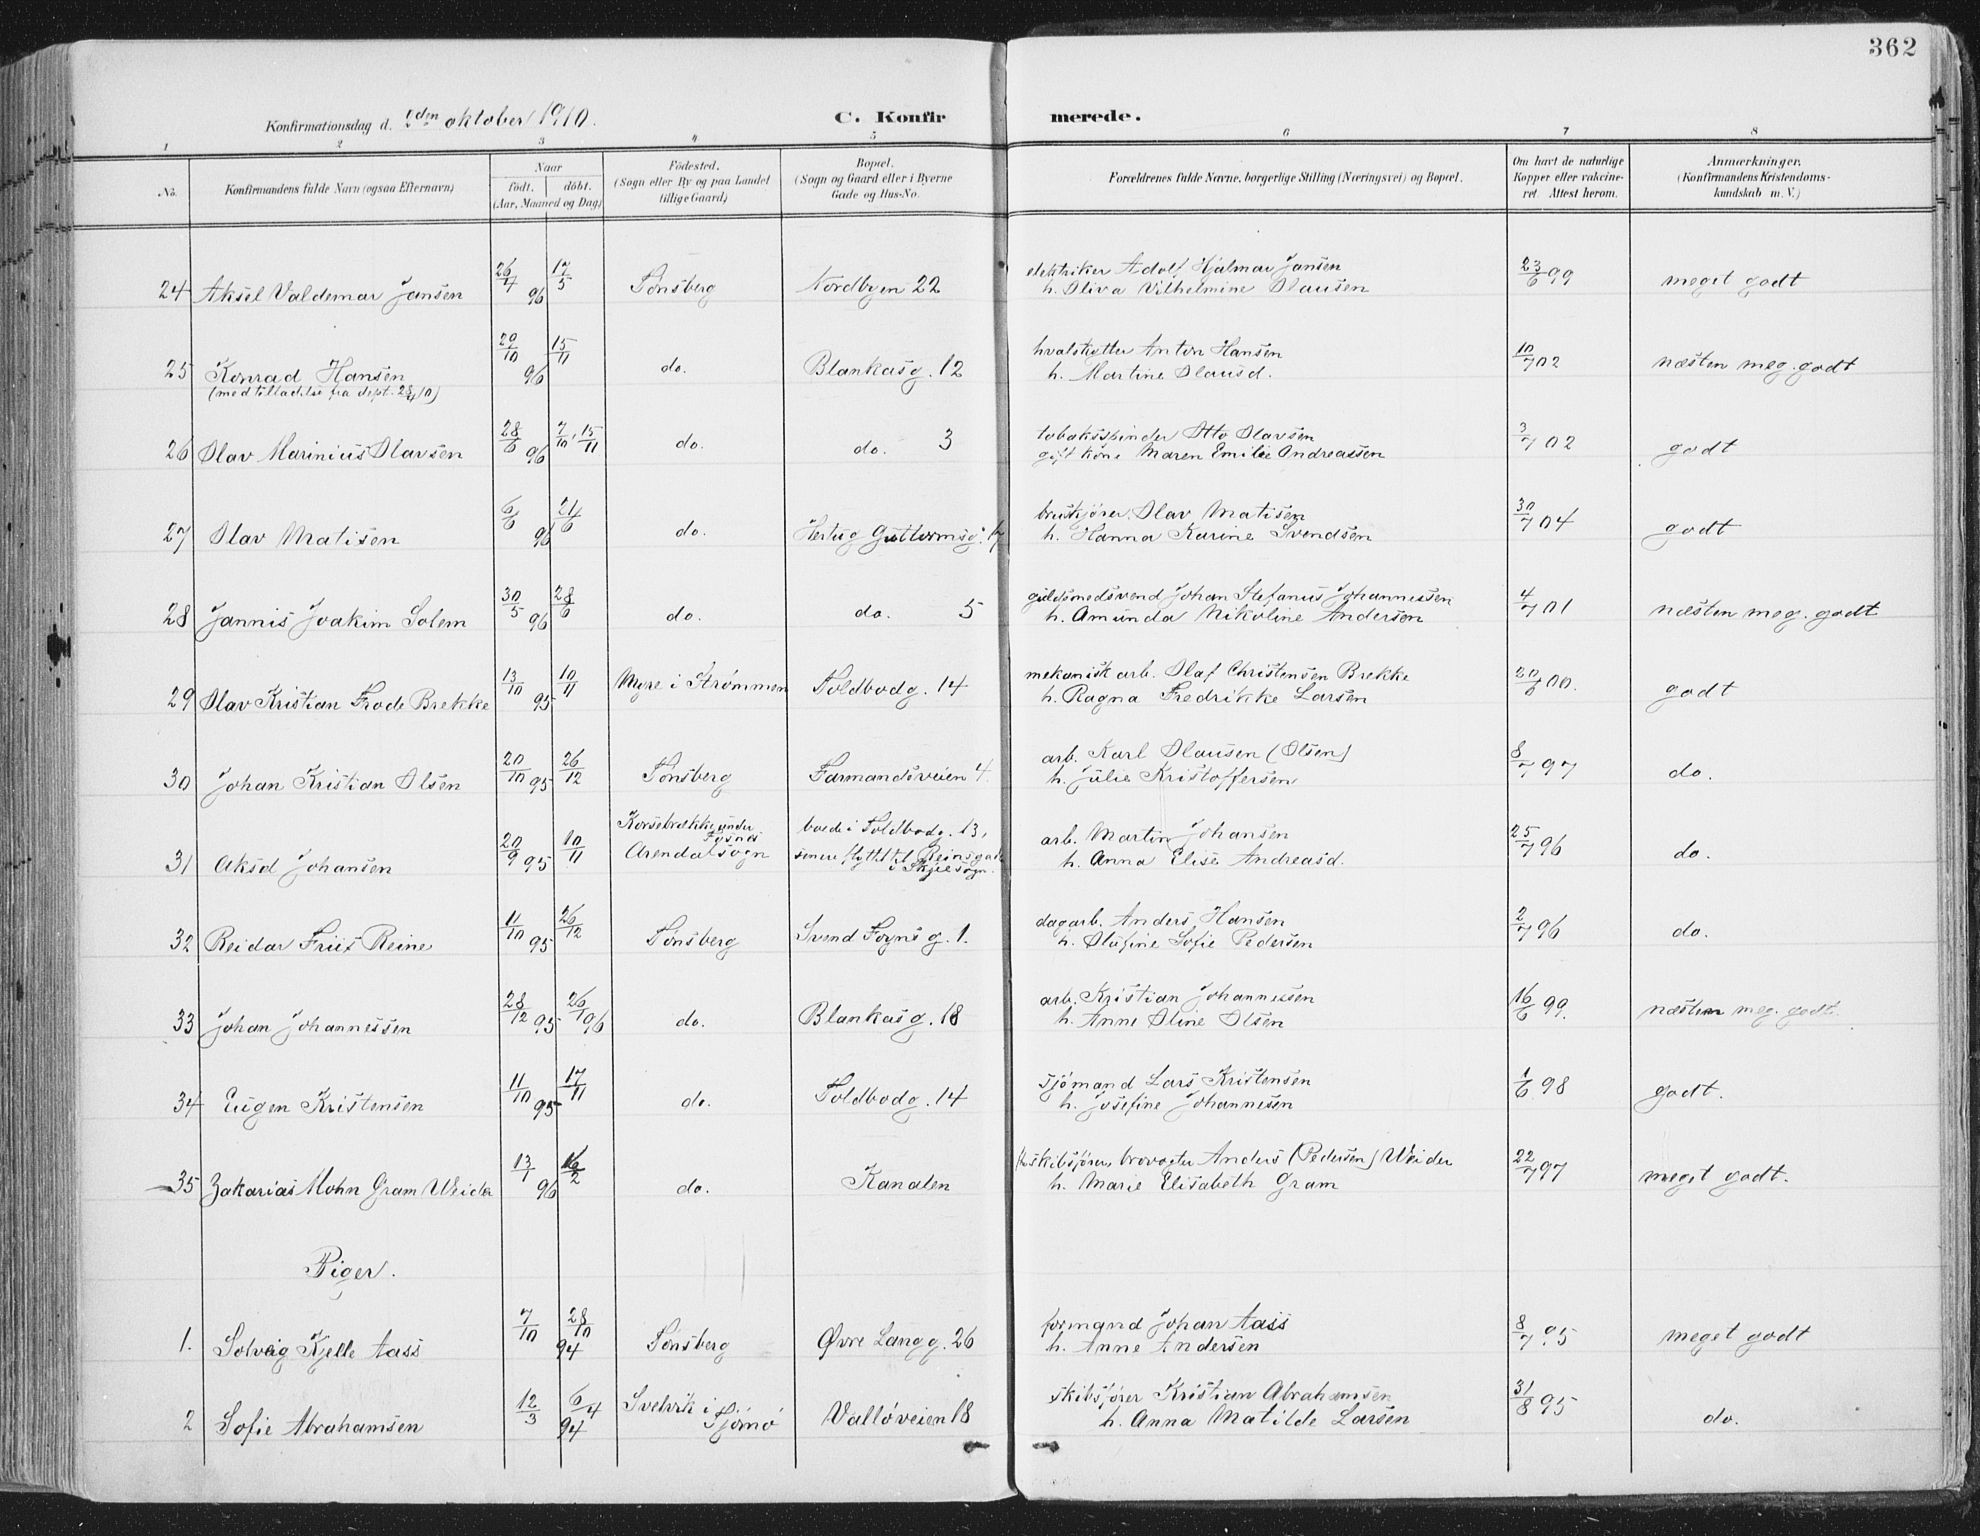 362
Konfirmationsdag d. 2den oktober 1910.
C. Konfirmerede.
1 2 3 4 5 6 7 8
No. Konfirmandens fulde Navn (ogsaa Efternavn) Naar født. døbt. (Aar, Maaned og Dag) Fødested. (Sogn eller By og paa Landet tillige Gaard) Bopæl. (Sogn og Gaard eller i Byerne Gade og Hus-No. Forældrenes fulde Navne, borgerlige Stilling (Næringsvei) og Bopæl. Om havt de naturlige Kopper eller vakcineret. Attest herom. Anmærkninger. (Konfirmandens Kristendomskundskab m. V.)
24 Aksel Valdemar Jansen 26/4 96 17/5 Tønsberg Nordbyen 22 elektriker Adolf Hjalmar Jansen 23/6 99 meget godt
h. Oliva Vilhelmine Olausen
25 Konrad Hansen 29/10 96 15/11 do. Blankasg. 12 hvalskytter Anton Hansen 10/7 02 næsten meg. godt
(med tilladelse fra dept. 28/4 10) h. Martine Olausd.
26 Olav Marinius Olavsen 28/6 96 7/10, 15/11 do. do. 3 tobaksspinder Otto Olavsen 3/7 02 godt
gift kone Maren Emilie Andreassen
27 Olav Matisen 6/6 96 21/6 do. Hertug Guttormsg. 17 bruskjører Olav Matisen 30/7 04 godt
h. Hanna Karine Svendsen
28 Jannis Joakim Solem 30/5 96 28/6 do. do. 5 guldsmedsvend Johan Stefanus Johannessen 4/7 01 næsten meg. godt
h. Amunda Nikoline Andersen
29 Olav Kristian Frode Brekke 13/10 95 10/11 Myre i Strømmen Toldbodg. 14 mekanisk arb. Olaf Christensen Brekke 20/6 00. godt
h. Ragna Fredrikke Larsen
30 Johan Kristian Olsen 20/10 95 26/12 Tønsberg Farmandsveien 4. arb. Karl Olausen (Olsen) 8/7 97 do.
h. Julie Kristoffersen
31 Aksel Johansen 20/9 95 10/11 Korsebrække under Arendalsogn boede i Toldbodg. 13, senere flyttet til i Skjee sogn. arb. Martin Johansen 25/7 96 do.
h. Anna Elise Andreasd.
32 Reidar Friis Reine 11/10 95 26/12 Tønsberg Svend Foyns g. 1. dagarb. Anders Hansen 2/7 96 do.
h. Olufine Sofie Pedersen
33 Johan Johannessen 28/12 95 26/10 96 do. Blankasg. 18 arb. Kristian Johannessen 16/6 99. næsten meg. godt.
h. Anne Oline Olsen
34 Eugen Kristensen 11/10 95 17/11 do. Toldbodg. 14 sjømand Lars Kristensen 1/6 98 godt.
h. Josefine Johannesen
35 Zakarias Mohn Gram Weider 13/1 96 16/2 do. Kanalen skibsfører, brovogter Anders (Pedersen) Weider 22/7 97 meget godt.
h. Marie Elisabeth Gram
Piger.
1. Solveig Kjelle Aass 7/10 94 28/10 Tønsberg Øvre Langg. 26 formand Johan Aass 8/7 95 meget godt
h. Anne Andersen
2 Sofie Abrahamsen 12/3 94 6/4 Svelvik i Tjømø Valløveien 18 skibsfører Kristian Abrahamsen 31/8 95 do.
h. Anna Matilde Larsen